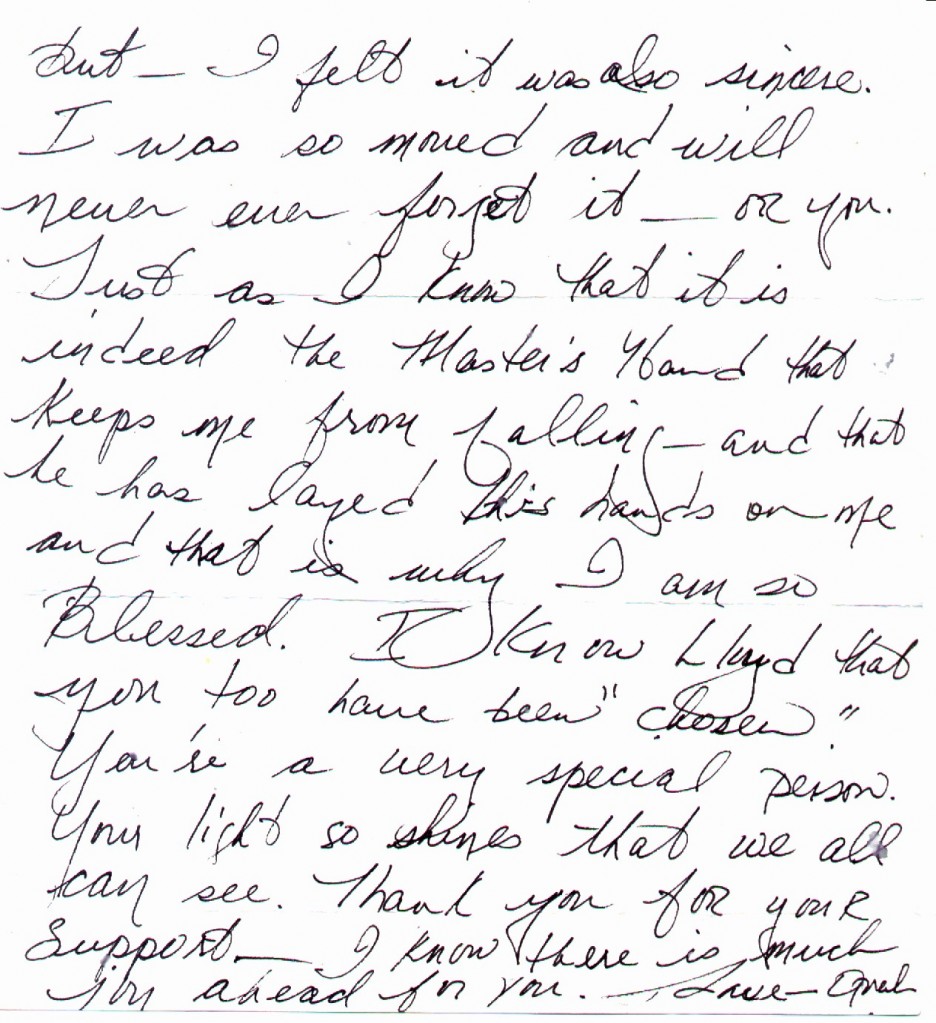 but — I felt it was also sincere.
I was so moved and will
never ever forget it — or you.
Just as I know that it is
indeed the Master's Hand that
keeps me from falling — and that
he has layed this hands on me
and that is why I am so
Blessed. I know Lloyd that
you too have been "chosen"
You're a very special person.
Your light so shines that we all
can see. Thank you for your
Support — I know there is much
joy ahead for you. — Love —